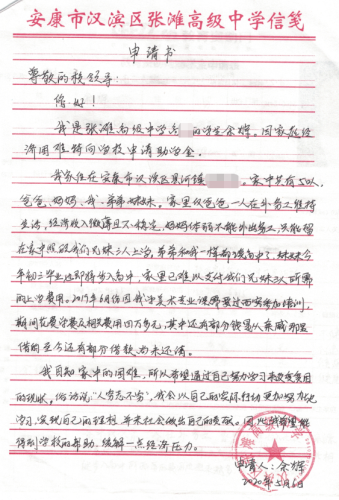 安康市汉滨区张滩高级中学信笺
申请书
尊敬的校领导：
您好！
我是张滩高级中学高 的学生余辉。因家庭经
济困难特向学校申请助学金。
我家住在安康市汉滨区县河镇 。家中共有5口人，
爸爸、妈妈、我、弟弟和妹妹。家里仅爸爸一人在外务工维持
生活，经济收入微薄且不稳定，妈妈体弱不能外出务工，只能留
在家中照顾我们兄妹三人上学。弟弟和我一样都读高中了，妹妹今
年初三毕业还即将步入高中，家里已难以支付我们兄妹三人所需
的上学费用。2019年6月份因我学美术专业课需要过西安参加培训，
期间花费学费及相关费用四万多元，其中还有部分钱是从亲戚那里
借的至今还有部分借款尚未还清。
我自知家中的困难，所以希望通过自己努力学习来改变家里
的现状，俗话说，“人穷志不穷”，我会以自己的实际行动更加努力地
学习，实现自己的理想，并未社会做出自己的贡献。因此我希望能
得到学校的帮助，缓解一点经济压力。
申请人：余辉
2020年5月6日